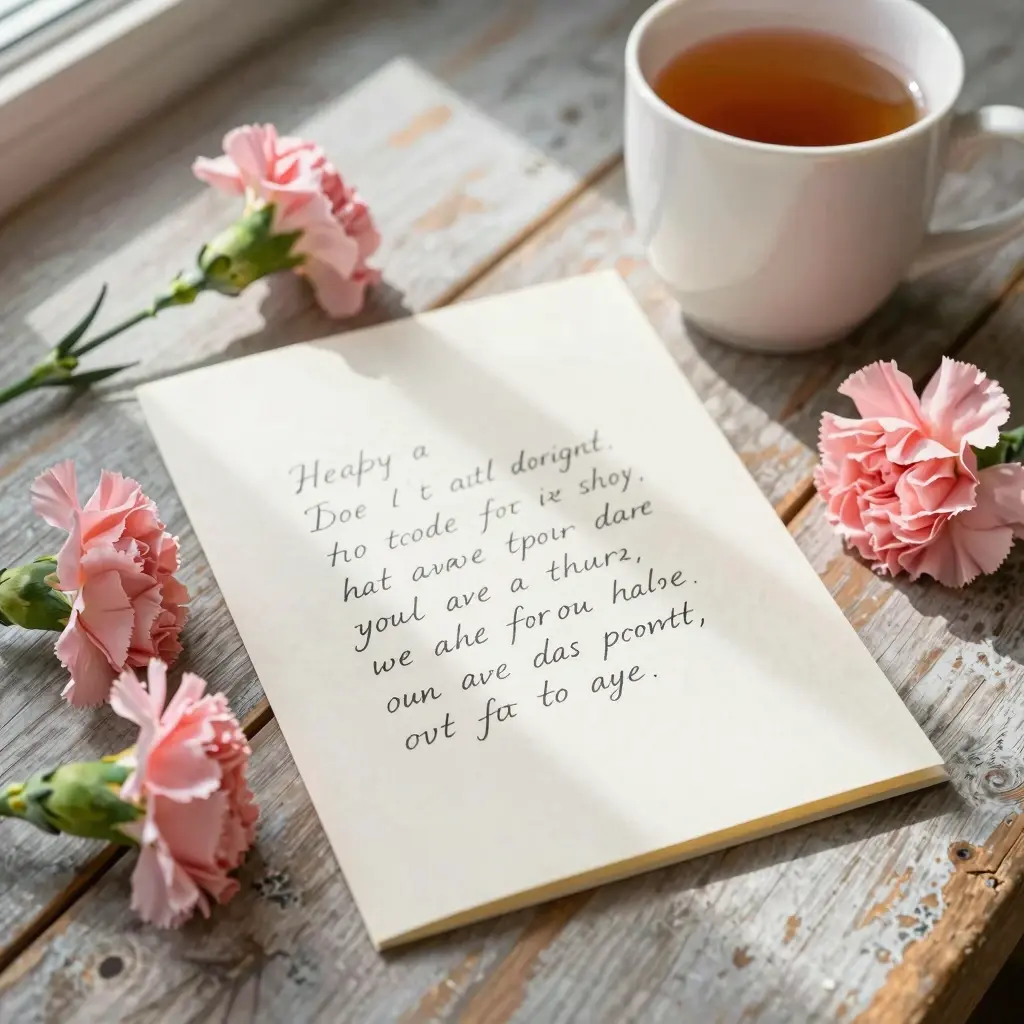 Heapy a
Doe l't atl dorignt.
tho tcode for ix shoy.
hat avave tpour dare
youl ave a thurz,
we ahe forou halse.
oun ave das pcontt,
out fa to aye.